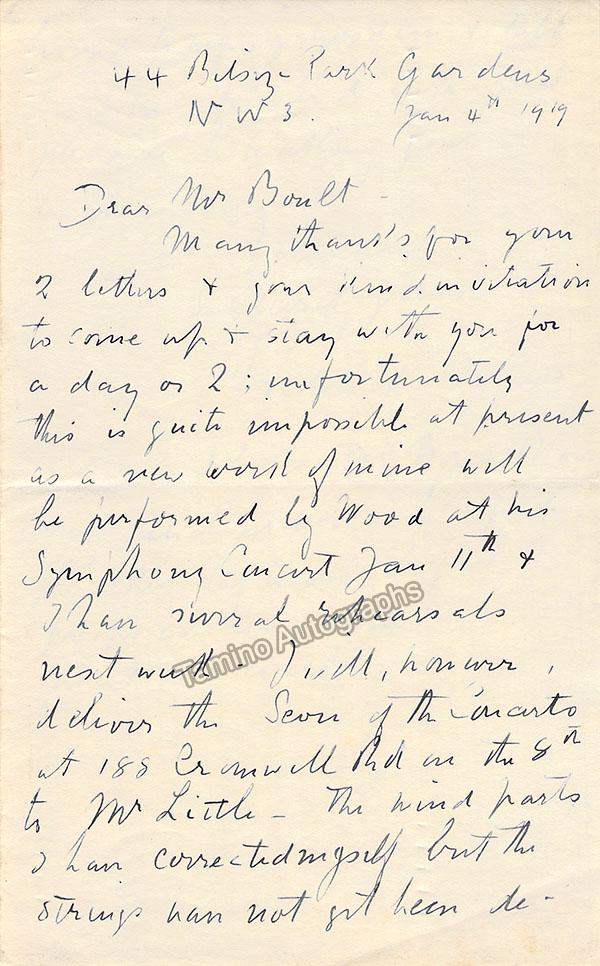 44 Belsize Park Gardens
N W 3. Jan 4th 1919
Dear Mr Boult -
Many thanks for your
2 letters & your kind invitation
to come up & stay with you for
a day or 2; unfortunately
this is quite impossible at present
as a new work of mine will
be performed by Wood at his
Symphony Concert Jan 11th &
I have several rehearsals
next week - I will, however,
deliver the Score of the Concerto
at 188 Cromwell Rd on the 8th
to Mr Little - The wind parts
I have corrected myself but the
strings have not yet been de-
Tamino Autographs